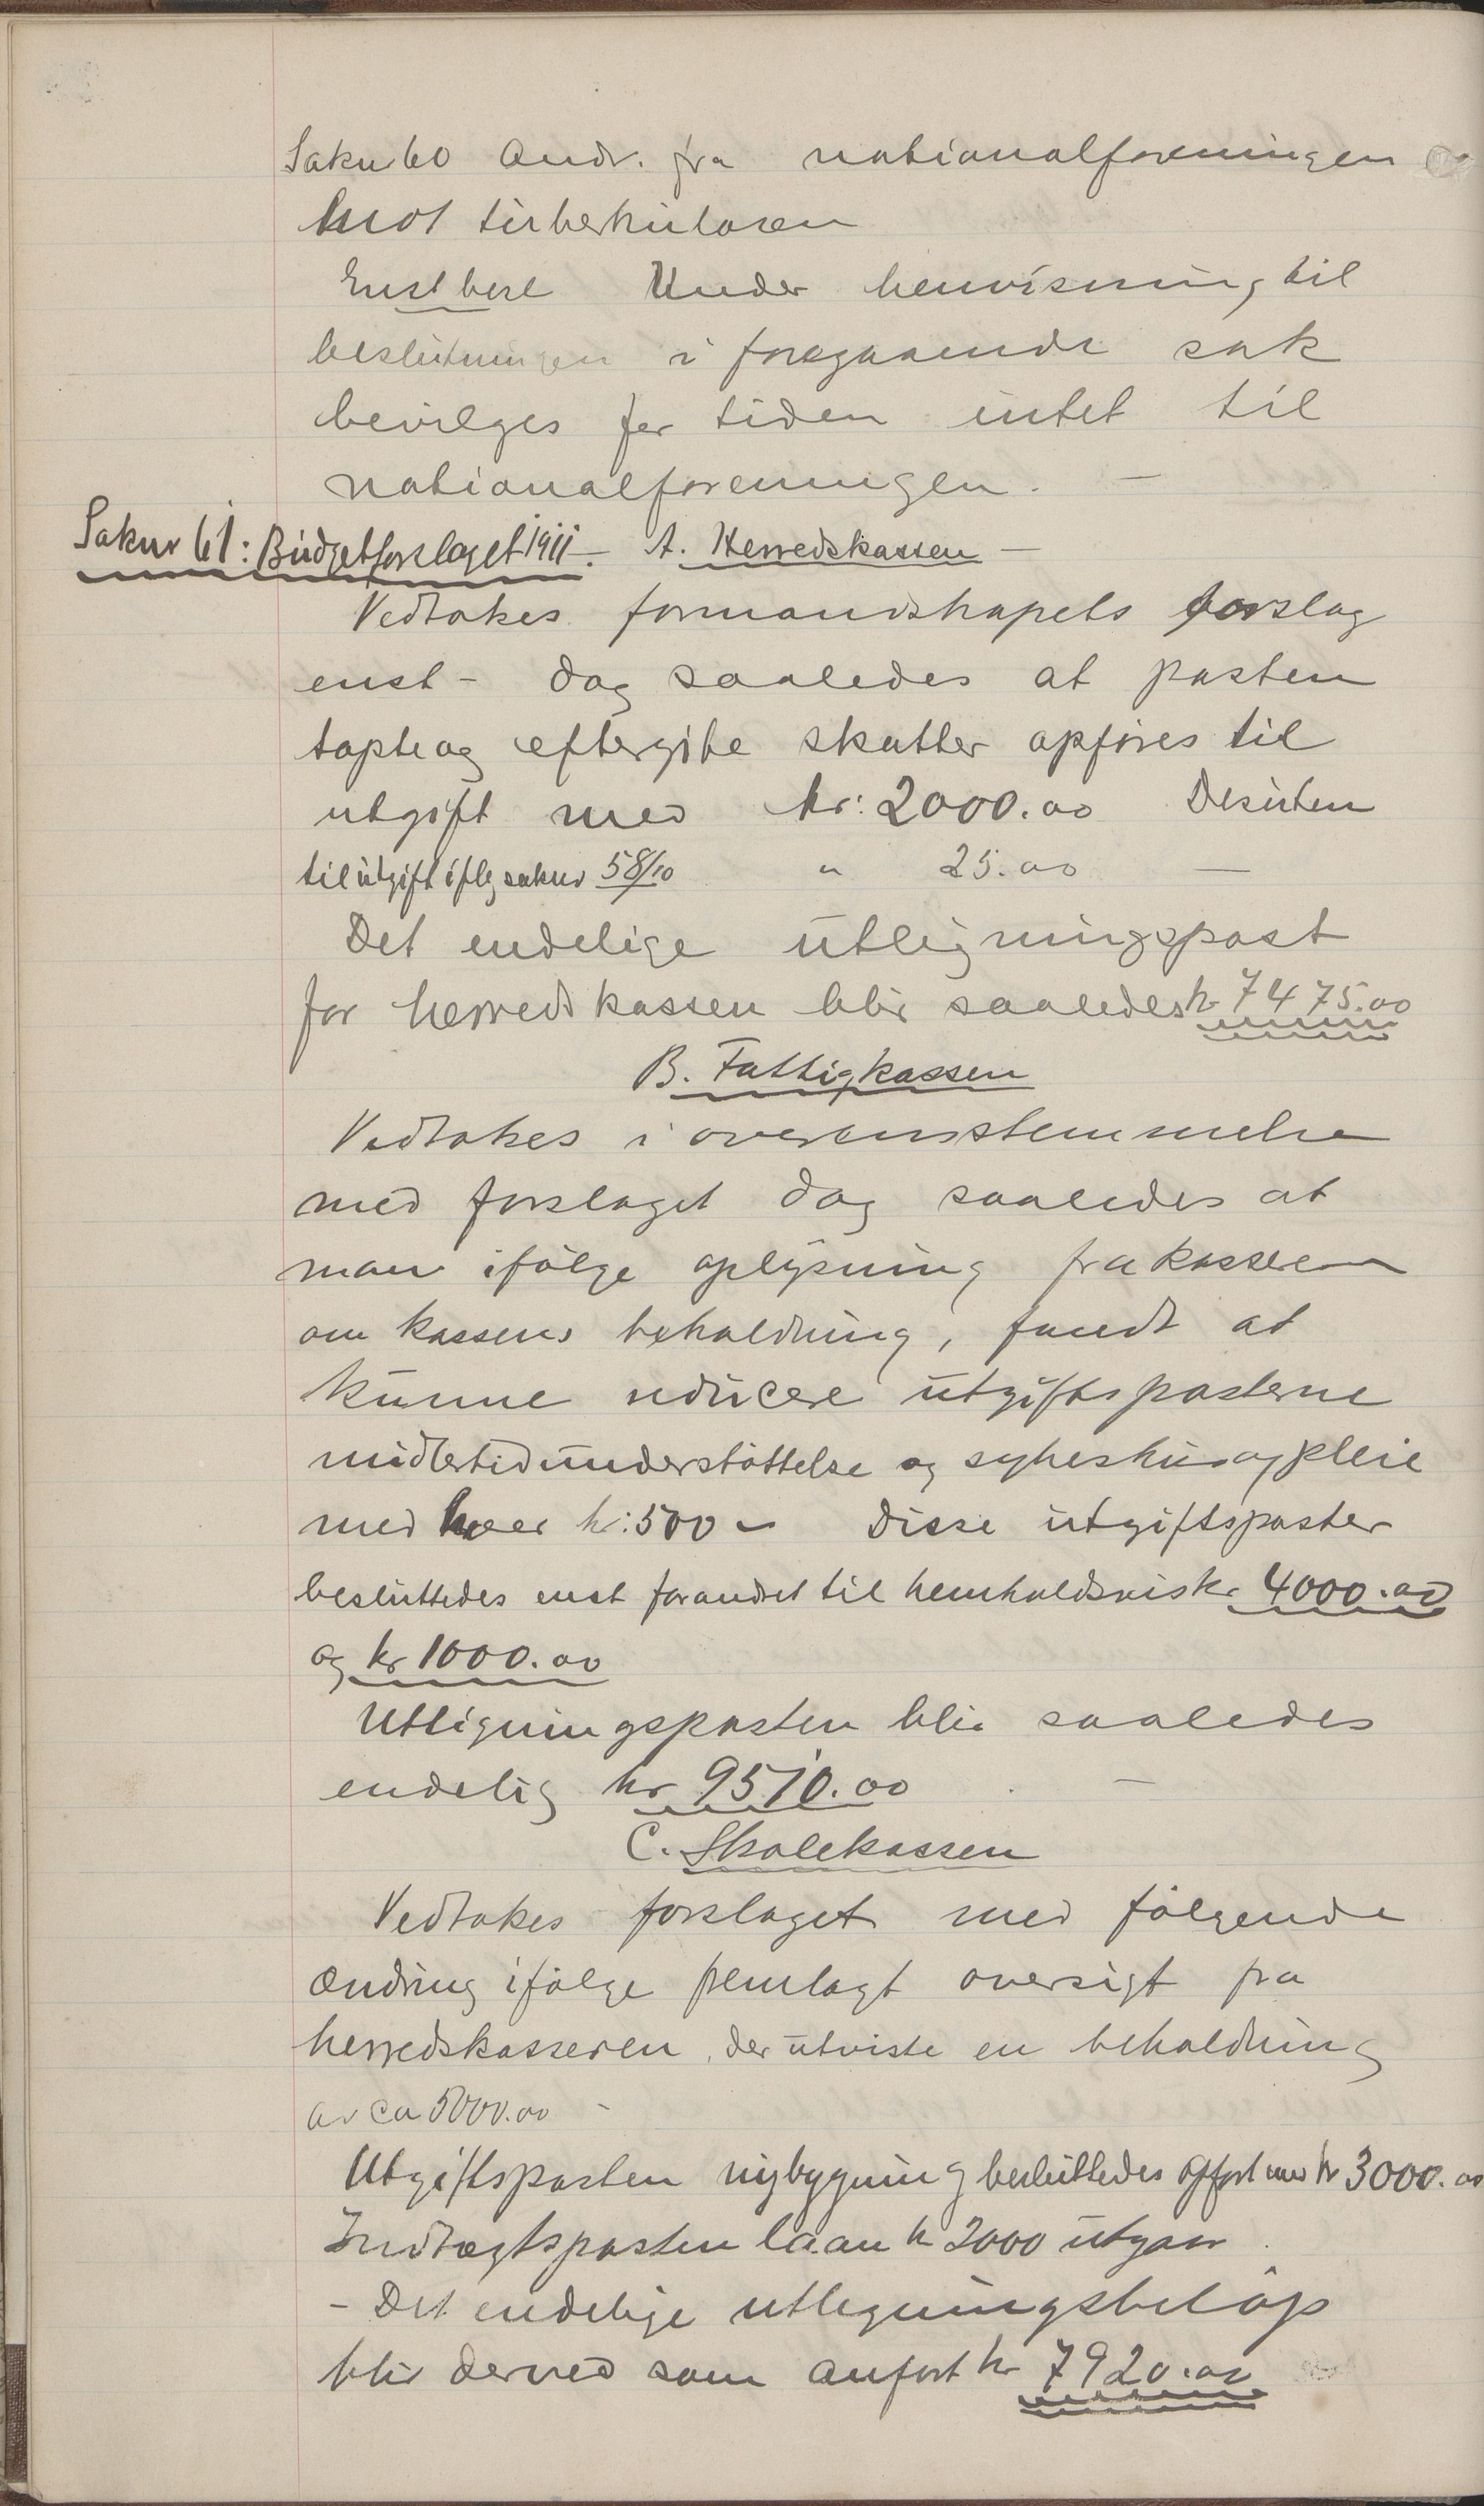 Saknr 60 Andr. fra nationalforeningen
mot tuberkulosen
Enst besl Under henvisning til
beslutningen i foregaaende sak
bevilges for tiden intet til
nationalforeningen. —
Saknr 61: Budgetforslaget 1911. — A. Herredskassen —
Vedtakes formandskapets forslag
enst - dog saaledes at posten
tapte og eftergite skatter opføres til
utgift med kr: 2000.00 Desuten
til utgift iflg saknr 58/10 " 25.00 —
Det endelige utligningspost
for herredskassen blir saaledes kr 7475.00
B. Fattigkassen
Vedtakes i overensstemmelse
med forslaget dog saaledes at
man ifølge oplysning fra kasseren
om kassens beholdning, fandt at
kunne reducere utgiftsposterne
midlertid understøttelse og sykeshus og pleie
med hver kr: 500 - Disse utgiftsposter
besluttedes enst forandret til henholdsvis kr 4000.00
og kr 1000.00
Utligningsposten blir saaledes
endelig kr 9510.00 —
C. Skolekassen
Vedtakes forslaget med følgende
ændring ifølge fremlagt oversigt fra
herredskasseren, der utviste en beholdning
av ca 5000.00 -
Utgiftsposten nybygning besluttedes opført med kr 3000.00
Indtægtsposten laan kr 2000 utgaar.
- Det endelige utlegningsbeløp
blir derved som anført kr 7920.00